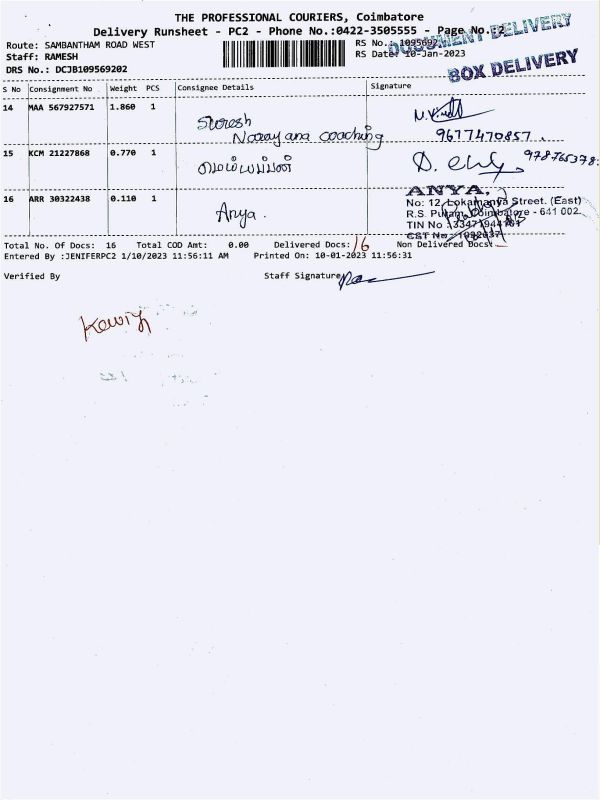 THE PROFESSIONAL COURIERS, Coimbatore
Delivery Runsheet - PC2 - Phone No.:0422-3505555 - Page No.:2
DOCUMENT DELIVERY
Route: SAMBANTHAM ROAD WEST
RS No.: 1095692
Staff: RAMESH
RS Date: 10-Jan-2023
DRS No.: DCJB109569202
BOX DELIVERY
S No Consignment No Weight PCS Consignee Details Signature
14 MAA 567927571 1.860 1
Suresh
Narayana coaching
9677470857
15 KCM 21227868 0.770 1
978765378
16 ARR 30322438 0.110 1
Anya.
ANYA,
No: 12, Lokamanya Street. (East)
R.S. Puram, Coimbatore - 641 002.
TIN No :
CST No :
Total No. Of Docs: 16 Total COD Amt: 0.00 Delivered Docs: 16 Non Delivered Docs:
Entered By :JENIFERPC2 1/10/2023 11:56:11 AM Printed On: 10-01-2023 11:56:31
Verified By Staff Signature